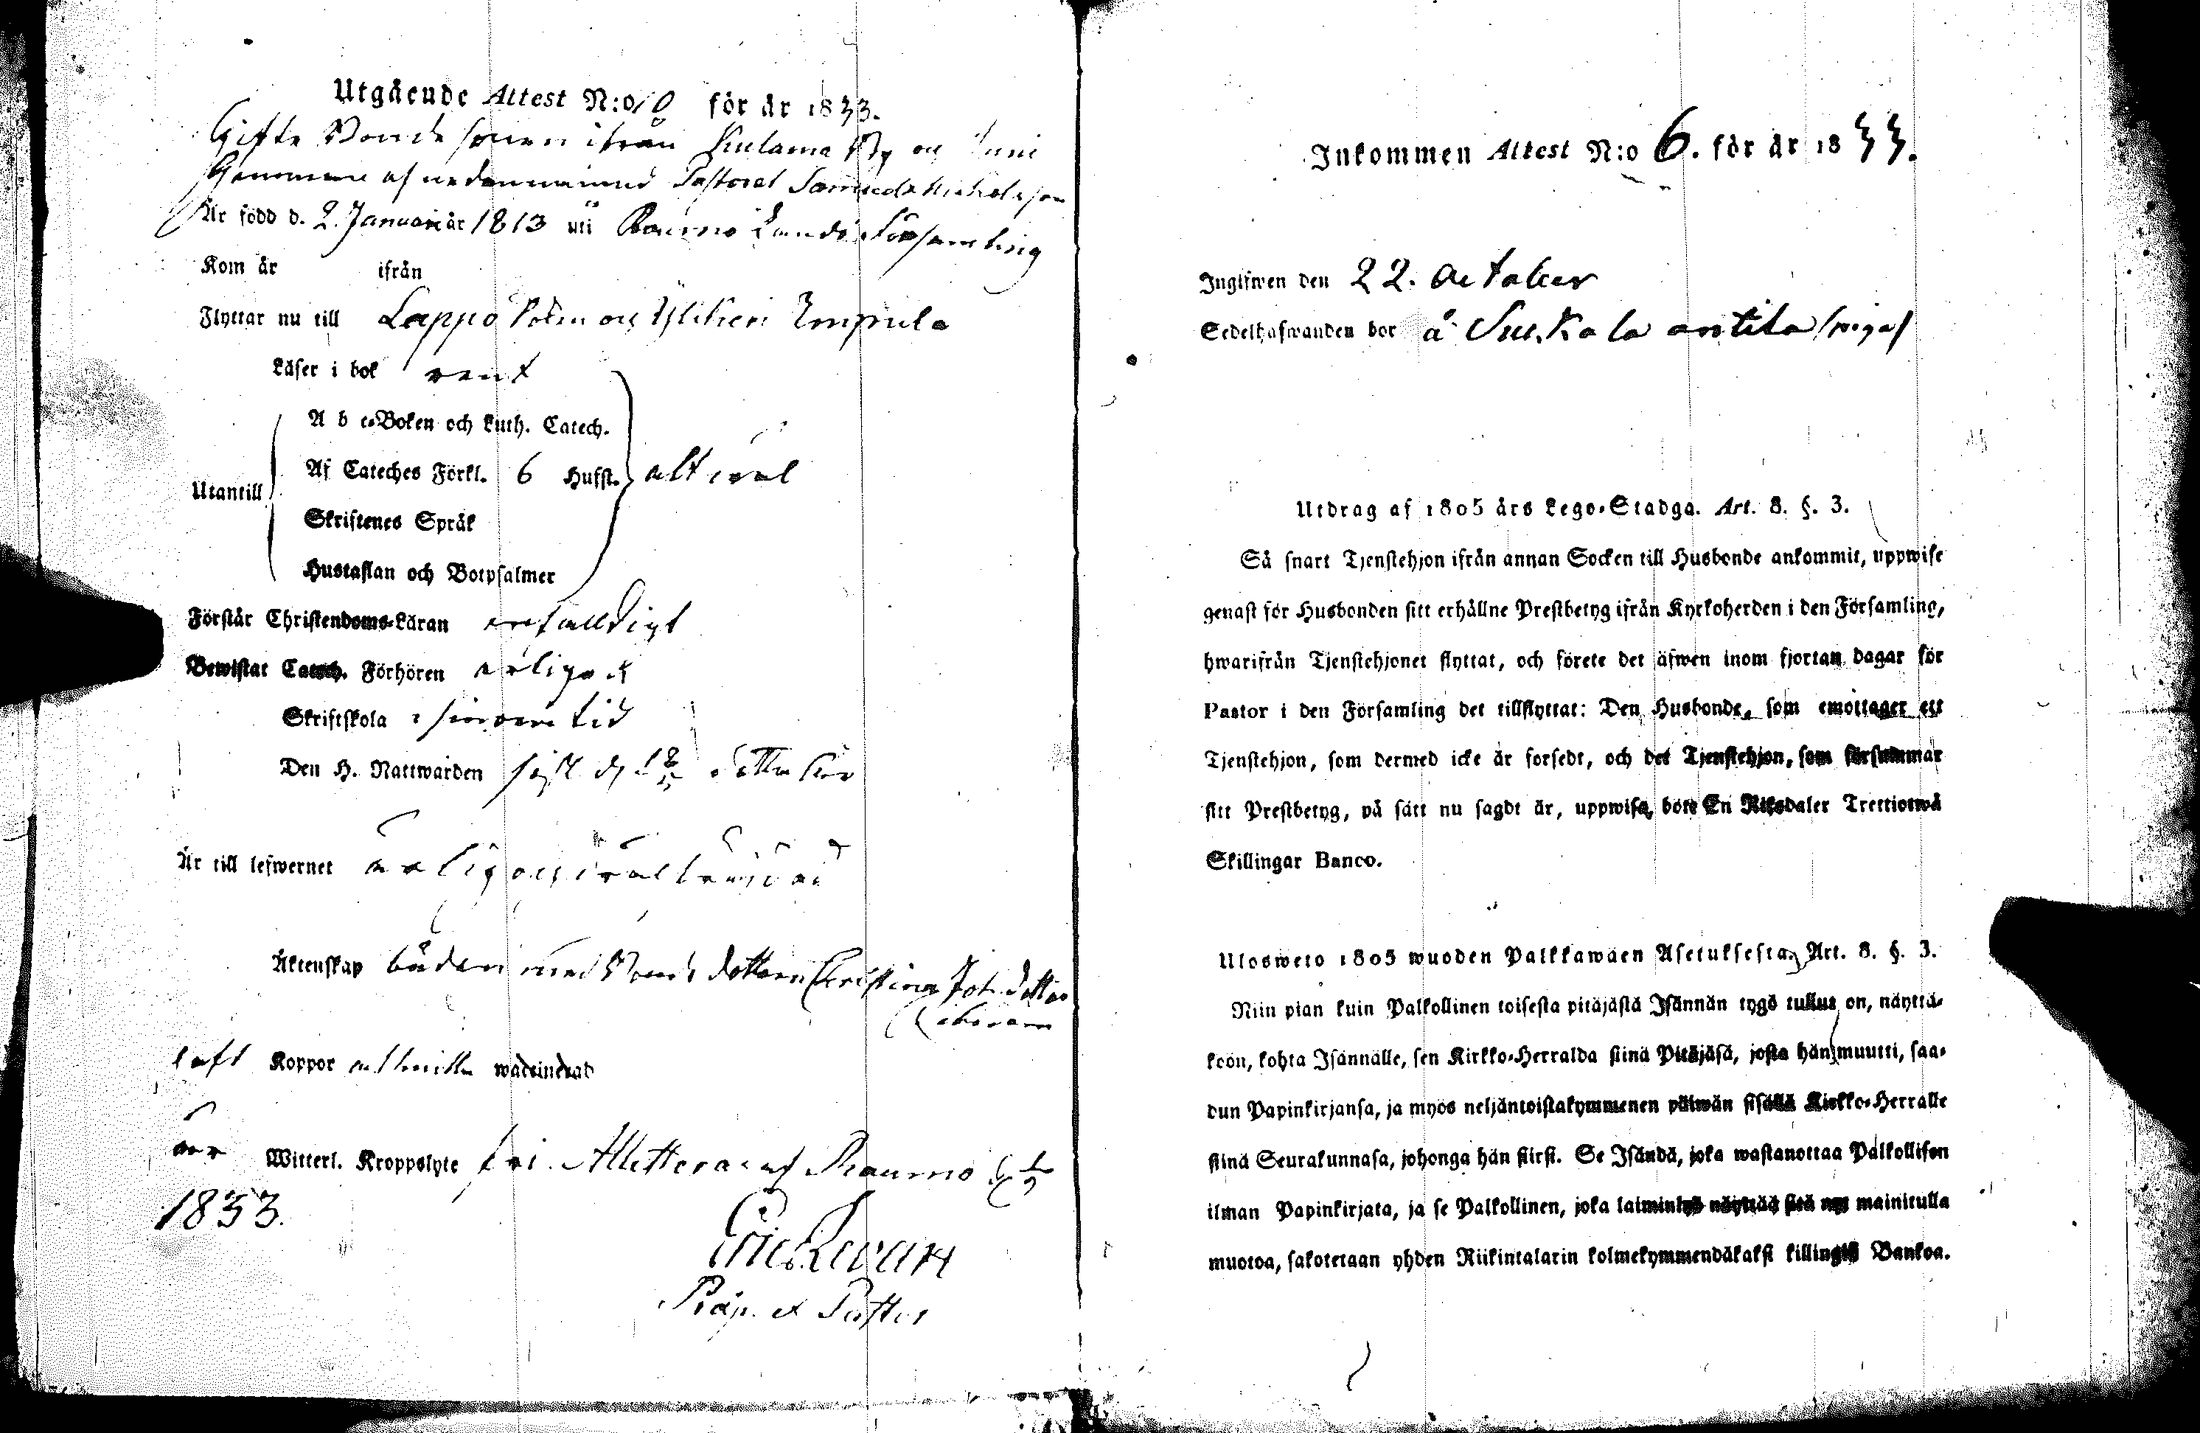 Utgående Attest N:o 10 för år 1833.
Gifte Bonde sonen ifrån Kulama By och Juni
Hemman af nedannamned Pastorat Samuel Michelsson
Är född d. 2. Januari år 1813 uti Raumo Lands Församling
Kom år ifrån
Flyttar nu till Lappo Sokn och Ylikeri Empula
Läser i bok rent
Utantill
A b c-Boken och Luth. Catech.
Af Cateches Förkl. 6 Hufst. alt wäl
Skriftenes Språk
Hustaflan och Botpsalmer
Förstår Christendoms-Läran enfalldigt
Bewistat Catech. Förhören årligen
Skriftskola i sinom tid
Den H. Nattwarden sist d.
Är till lefwernet ärlig och wäl
Äktenskap bunden med Bonde dottren Christina Joh. dotter
haft Koppor wacinerad
Witterl. Kroppslyte fri. Attesteras af Raumo d.
1833.
Præp. et Pastor
Inkommen Attest N:o 6. för år 1833.
Ingifwen den 22. October
Sedelhafwanden bor å Suckala antila
Utdrag af 1805 års Lego-Stadga. Art. 8. §. 3.
Så snart Tjenstehjon ifrån annan Socken till Husbonde ankommit, uppwise
genast för Husbonden sitt erhållne Prestbetyg ifrån Kyrkoherden i den Församling,
hwarifrån Tjenstehjonet flyttat, och förete det äfwen inom fjortan dagar för
Pastor i den Församling det tillflyttat: Den Husbonde, som emottager ett
Tjenstehjon, som dermed icke är försedt, och det Tjenstehjon, som försummar
sitt Prestbetyg, på sätt nu sagdt är, uppwisa, böte En Riksdaler Trettiotwå
Skillingar Banco.
Ulosweto 1805 wuoden Palkkawäen Asetuksesta, Art. 8. §. 3.
Niin pian kuin Palkollinen toisesta pitäjästä Isännän tygö tullut on, näyttä-
köön, kohta Isännälle, sen Kirkko-Herralda siinä Pitäjäsä, josta hän muutti, saa-
dun Papinkirjansa, ja myös neljäntoistakymmenen päiwän sisällä Kirkko-Herralle
siinä Seurakunnasa, johonga hän siirsi. Se Isändä, joka wastanottaa Palkollisen
ilman Papinkirjata, ja se Palkollinen, joka laiminlyö näyttää sitä nyt mainitulla
muotoa, sakotetaan yhden Riikintalarin kolmekymmendäkaksi killingiä Bankoa.